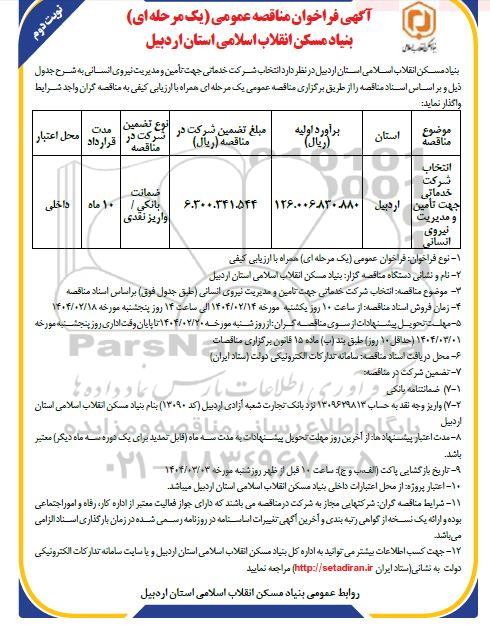 نوبت دوم
آگهی فراخوان مناقصه عمومی (یک مرحله ای)
بنیاد مسکن انقلاب اسلامی استان اردبیل
بنیاد مسکن انقلاب اسلامی استان اردبیل در نظر دارد انتخاب شرکت خدماتی جهت تأمین و مدیریت نیروی انسانی به شرح جدول
ذیل و بر اساس اسناد مناقصه را از طریق برگزاری مناقصه عمومی یک مرحله ای همراه با ارزیابی کیفی به مناقصه گران واجد شرایط
واگذار نماید:
موضوع مناقصه
استان
برآورد اولیه (ریال)
مبلغ تضمین شرکت در مناقصه (ریال)
نوع تضمین شرکت در مناقصه
مدت قرارداد
محل اعتبار
انتخاب شرکت خدماتی جهت تأمین و مدیریت نیروی انسانی
اردبیل
۱۲۶.۰۰۶.۸۳۰.۸۸۰
۶.۳۰۰.۳۴۱.۵۴۴
ضمانت بانکی / واریز نقدی
۱۰ ماه
داخلی
۱- نوع فراخوان: فراخوان عمومی (یک مرحله ای) همراه با ارزیابی کیفی
۲- نام و نشانی دستگاه مناقصه گزار: بنیاد مسکن انقلاب اسلامی استان اردبیل
۳- موضوع مناقصه: انتخاب شرکت خدماتی جهت تامین و مدیریت نیروی انسانی (طبق جدول فوق) براساس اسناد مناقصه
۴- زمان فروش اسناد مناقصه: از ساعت ۱۰ روز یکشنبه مورخه ۱۴۰۴/۰۲/۱۴ الی ساعت ۱۴ روز پنجشنبه مورخه ۱۴۰۴/۰۲/۱۸
۵- مهلت تحویل پیشنهادات از سوی مناقصه گران: از روز شنبه مورخه ۱۴۰۴/۰۲/۲۰ تا پایان وقت اداری روز پنجشنبه مورخه
۱۴۰۴/۰۳/۰۱ (حداقل ۱۰ روز) طبق بند (ب) ماده ۱۵ قانون برگزاری مناقصات
۶- محل دریافت اسناد مناقصه: سامانه تدارکات الکترونیکی دولت (ستاد ایران)
۷- تضمین شرکت در مناقصه:
۱-۷) ضمانتنامه بانکی
۲-۷) واریز وجه نقد به حساب ۱۳۰۹۶۲۹۸۱۳ نزد بانک تجارت شعبه آزادی اردبیل (کد ۱۳۰۹۰) بنام بنیاد مسکن انقلاب اسلامی استان
اردبیل
۸- مدت اعتبار پیشنهادها: از آخرین روز مهلت تحویل پیشنهادات به مدت سه ماه (قابل تمدید برای یک دوره سه ماه دیگر) معتبر
باشد.
۹- تاریخ بازگشایی پاکت (الف، ب و ج): ساعت ۱۰ قبل از ظهر روز شنبه مورخه ۱۴۰۴/۰۳/۰۳
۱۰- اعتبار پروژه: از محل اعتبارات داخلی بنیاد مسکن انقلاب اسلامی استان اردبیل میباشد.
۱۱- شرایط مناقصه گران: شرکتهایی مجاز به شرکت در مناقصه می باشند که دارای جواز فعالیت معتبر از اداره کار، رفاه و امور اجتماعی
بوده و ارائه یک نسخه از گواهی رتبه بندی و آخرین آگهی تغییرات اساسنامه در روزنامه رسمی شده در زمان بارگذاری اسناد الزامی
می‌باشد.
۱۲- جهت کسب اطلاعات بیشتر می توانید به اداره کل بنیاد مسکن انقلاب اسلامی استان اردبیل و یا سایت سامانه تدارکات الکترونیکی
دولت به نشانی (ستاد ایران http://setadiran.ir) مراجعه نمایید
روابط عمومی بنیاد مسکن انقلاب اسلامی استان اردبیل
ParsNamadData
۰۲۱-۸۸۳۴۹۶۷۰-۵